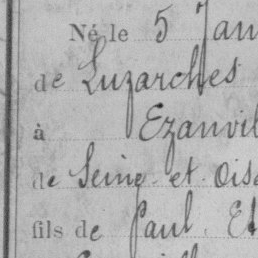 Né le 5 Jan
de Luzarches
à Ezanvil
de Seine et Ois
fils de Paul, Et